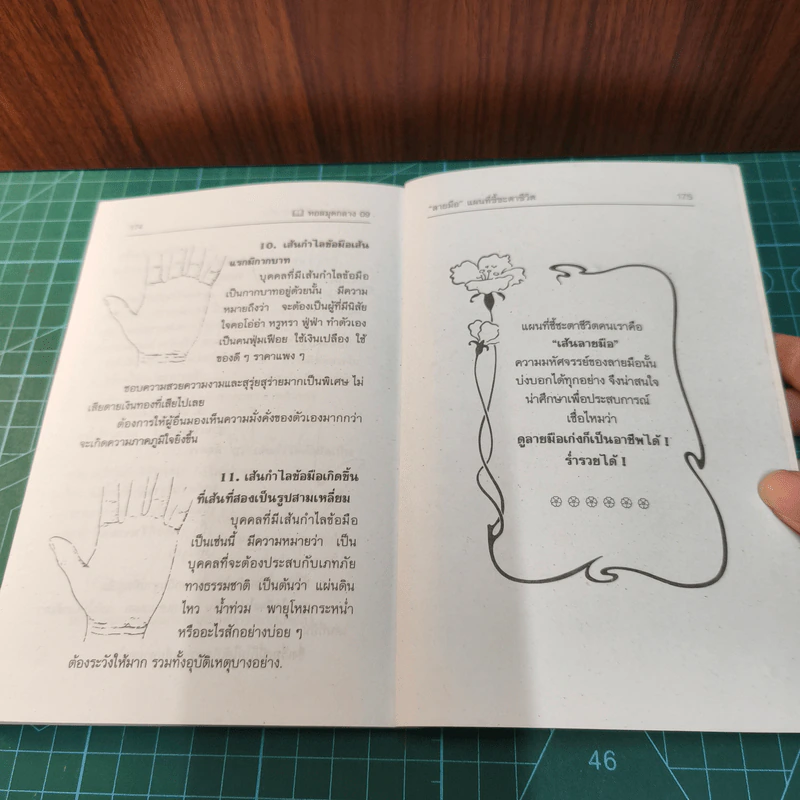 174
หอสมุดกลาง 09
10. เส้นกำไลข้อมือเส้น
แรกมีกากบาท
บุคคลที่มีเส้นกำไลข้อมือ
เป็นกากบาทอยู่ด้วยนั้น มีความ
หมายถึงว่า จะต้องเป็นผู้ที่มีนิสัย
ใจคอโอ่อ่า หรูหรา ฟู่ฟ่า ทำตัวเอง
เป็นคนฟุ่มเฟือย ใช้เงินเปลือง ใช้
ของดี ๆ ราคาแพง ๆ
ชอบความสวยความงามและสุรุ่ยสุร่ายมากเป็นพิเศษ ไม่
เสียดายเงินทองที่เสียไปเลย
ต้องการให้ผู้อื่นมองเห็นความมั่งคั่งของตัวเองมากกว่า
จะเกิดความภาคภูมิใจยิ่งขึ้น
11. เส้นกำไลข้อมือเกิดขึ้น
ที่เส้นที่สองเป็นรูปสามเหลี่ยม
บุคคลที่มีเส้นกำไลข้อมือ
เป็นเช่นนี้ มีความหมายว่า เป็น
บุคคลที่จะต้องประสบกับเภทภัย
ทางธรรมชาติ เป็นต้นว่า แผ่นดิน
ไหว น้ำท่วม พายุโหมกระหน่ำ
หรืออะไรสักอย่างบ่อย ๆ
ต้องระวังให้มาก รวมทั้งอุบัติเหตุบางอย่าง.
"ลายมือ" แผนที่ชี้ชะตาชีวิต
175
แผนที่ชี้ชะตาชีวิตคนเราคือ
"เส้นลายมือ"
ความมหัศจรรย์ของลายมือนั้น
บ่งบอกได้ทุกอย่าง จึงน่าสนใจ
น่าศึกษาเพื่อประสบการณ์
เชื่อไหมว่า
ดูลายมือเก่งก็เป็นอาชีพได้ !
ร่ำรวยได้ !
46